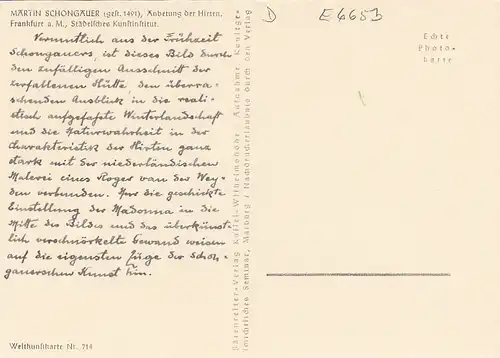 MARTIN SCHONGAUER (gest. 1491), Anbetung der Hirten.
Frankfurt a. M., Städelsches Kunstinstitut.
Vermutlich aus der Frühzeit
Schongauers, ist dieses Bild durch
den zufälligen Ausschnitt der
zerfallenen Hütte, den überra-
schenden Ausblick in die reali-
stisch aufgefaßte Winterlandschaft
und die Naturwahrheit in der
Charakteristik der Hirten ganz
stark mit der niederländischen
Malerei eines Roger van der Wey-
den verbunden. Nur die geschickte
Einstellung der Madonna in die
Mitte des Bildes und das überkünst-
lich verschnörkelte Gewand weisen
auf die eigensten Züge der Schon-
gauerschen Kunst hin.
Weltkunstkarte Nr. 714
Bärenreiter-Verlag Kassel-Wilhelmshöhe. Aufnahme Kunstge-
schichtliches Seminar, Marburg / Nachdruckerlaubnis durch den Verlag
D
E 6653
Echte
Photo-
karte